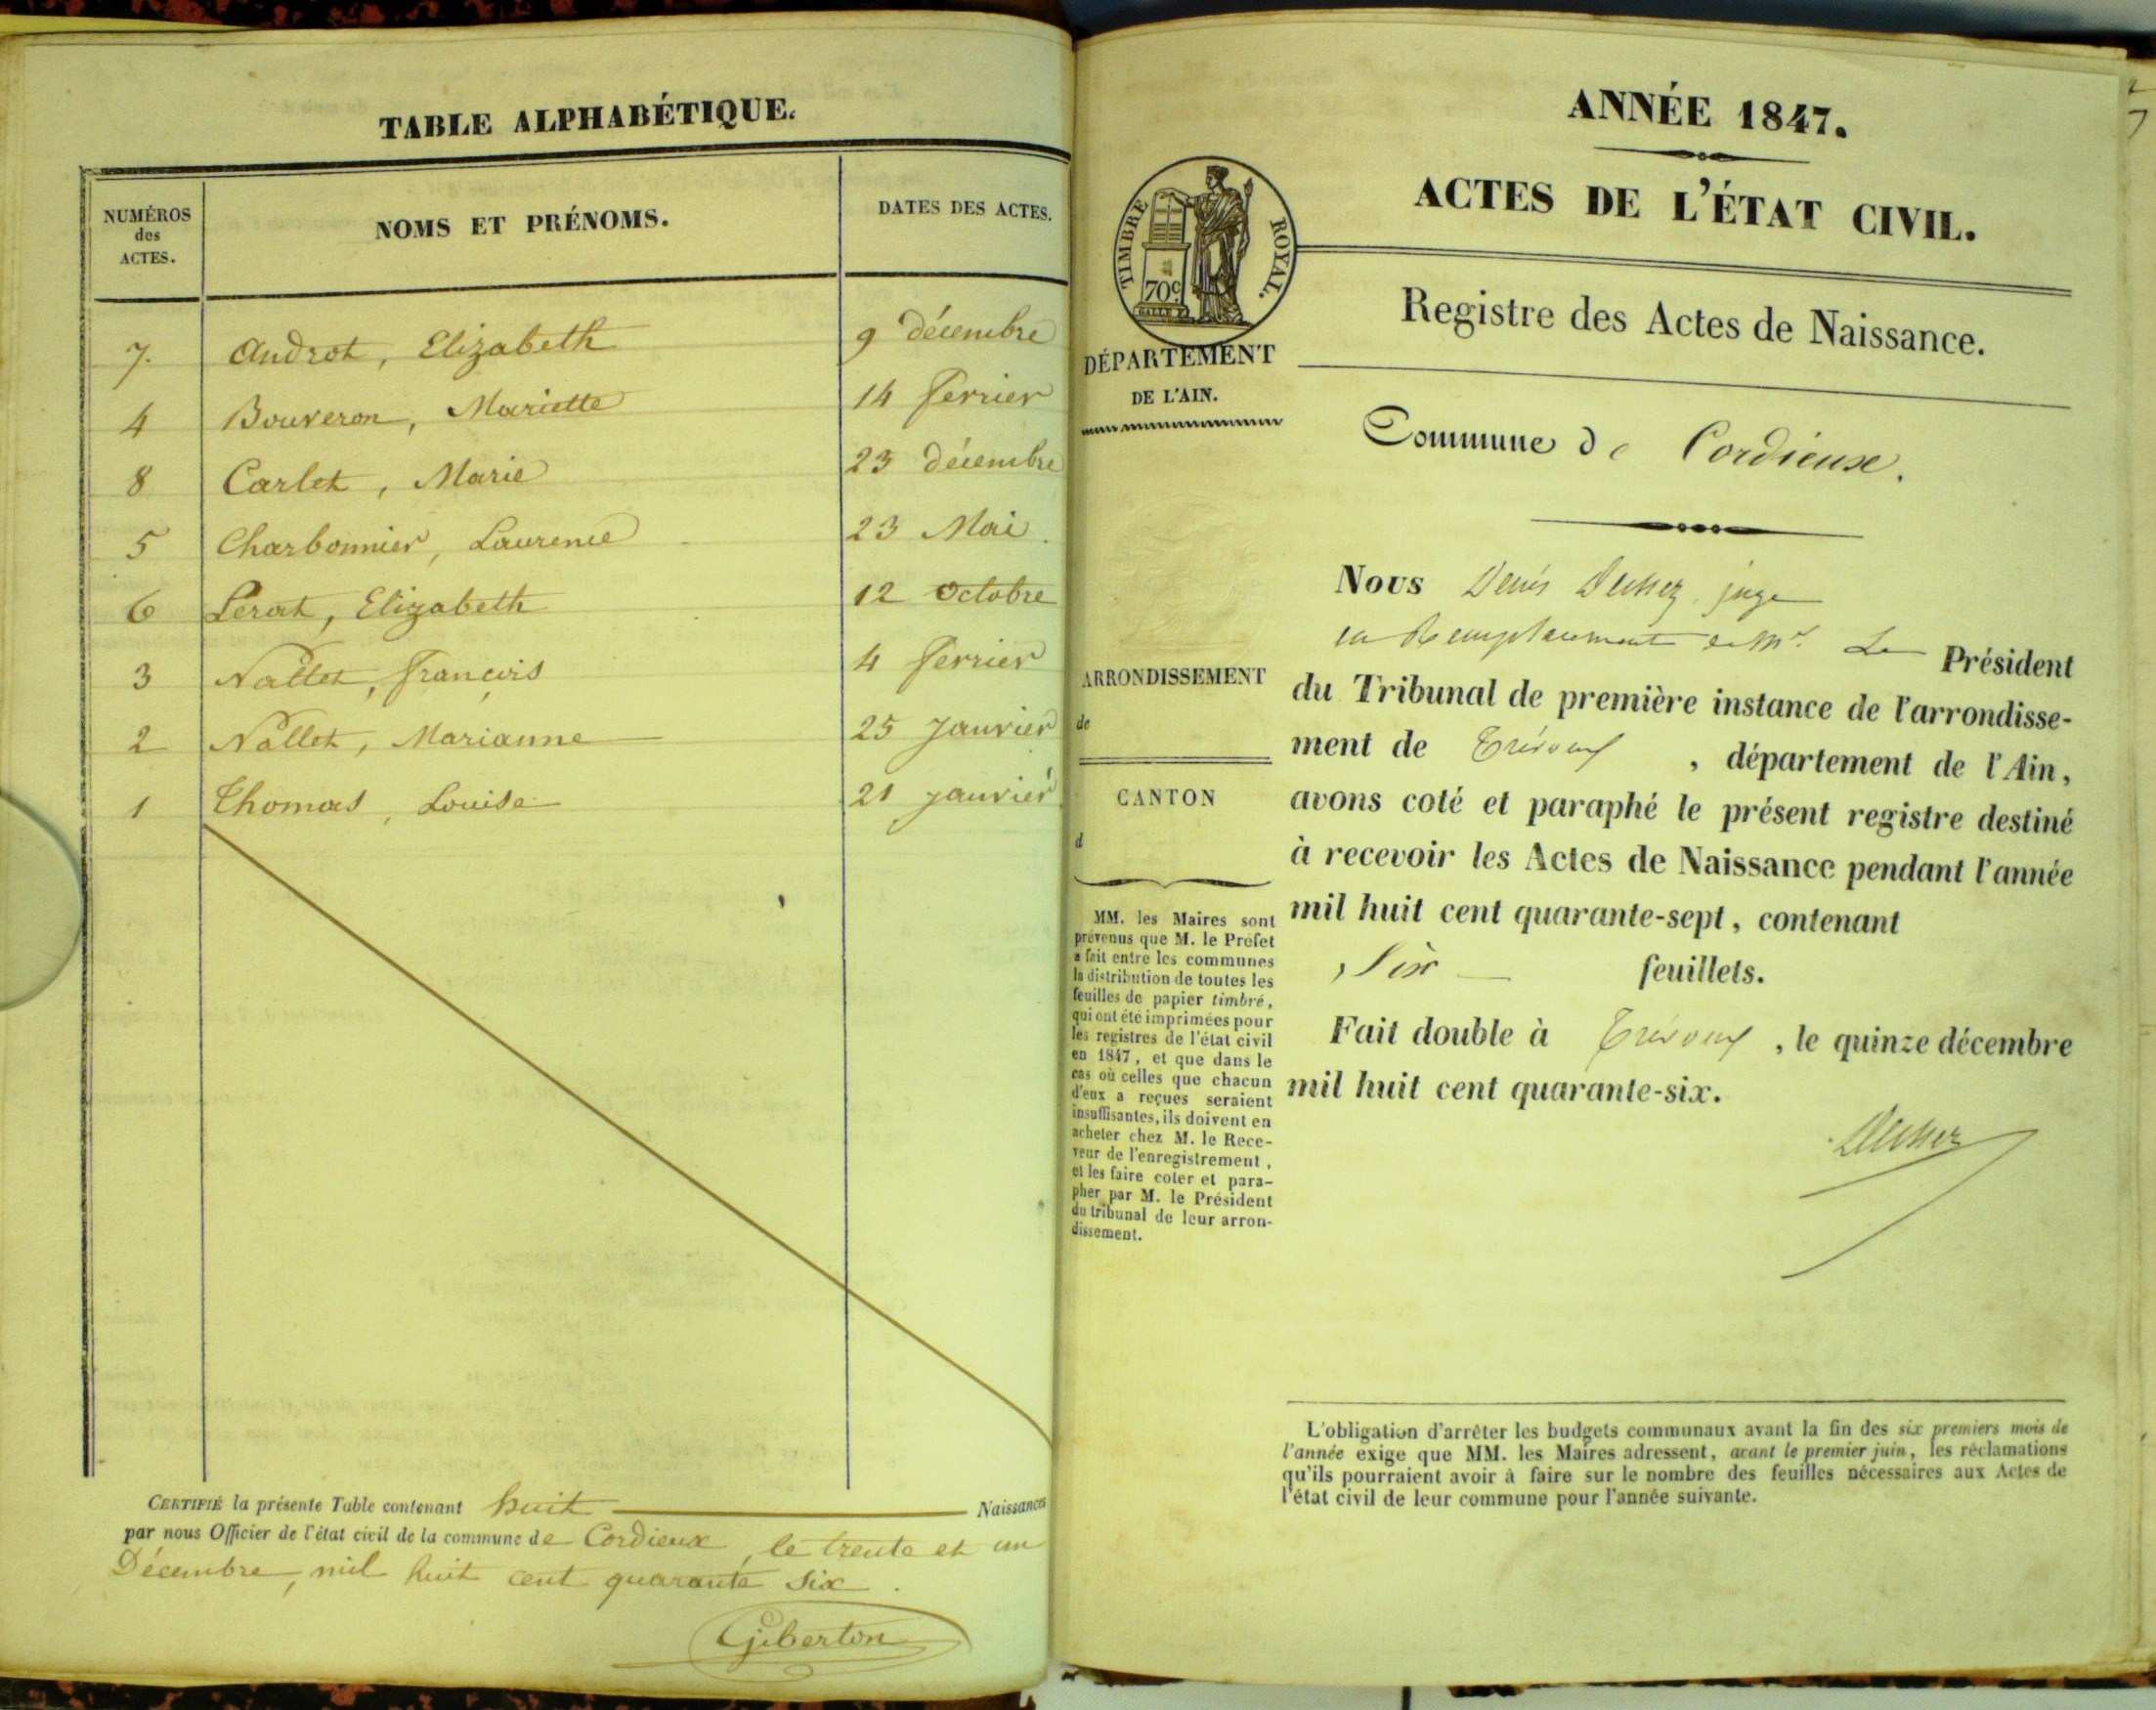 TABLE ALPHABÉTIQUE.
NUMÉROS
des
ACTES.
NOMS ET PRÉNOMS.
DATES DES ACTES.
7. Androt, Elizabeth 9 décembre
4 Bouveron, Mariette 14 fevrier
8 Carlet, Marie 23 décembre
5 Charbonnier, Laurence 23 Mai.
6 Perat, Elizabeth 12 Octobre
3 Nallet, françois 4 fevrier
2 Nallet, Marianne 25 Janvier
1 Thomas, Louise 21 janvier
CERTIFIÉ la présente Table contenant huit Naissances
par nous Officier de l'état civil de la commune de Cordieux, le trente et un
Décembre, mil huit cent quarante six.
Giberton
ANNÉE 1847.
ACTES DE L'ÉTAT CIVIL.
TIMBRE ROYAL.
70c
Registre des Actes de Naissance.
DÉPARTEMENT
DE L'AIN.
Commune de Cordieux.
ARRONDISSEMENT
de
CANTON
d
MM. les Maires sont
prévenus que M. le Préfet
a fait entre les communes
la distribution de toutes les
feuilles de papier timbré,
qui ont été imprimées pour
les registres de l'état civil
en 1847, et que dans le
cas où celles que chacun
d'eux a reçues seraient
insuffisantes, ils doivent en
acheter chez M. le Rece-
veur de l'enregistrement,
et les faire coter et para-
pher par M. le Président
du tribunal de leur arron-
dissement.
Nous Denis juge
en Remplacement de Mr. Le Président
du Tribunal de première instance de l'arrondisse-
ment de Trévoux, département de l'Ain,
avons coté et paraphé le présent registre destiné
à recevoir les Actes de Naissance pendant l'année
mil huit cent quarante-sept, contenant
Six feuillets.
Fait double à Trévoux, le quinze décembre
mil huit cent quarante-six.
L'obligation d'arrêter les budgets communaux avant la fin des six premiers mois de
l'année exige que MM. les Maires adressent, avant le premier juin, les réclamations
qu'ils pourraient avoir à faire sur le nombre des feuilles nécessaires aux Actes de
l'état civil de leur commune pour l'année suivante.